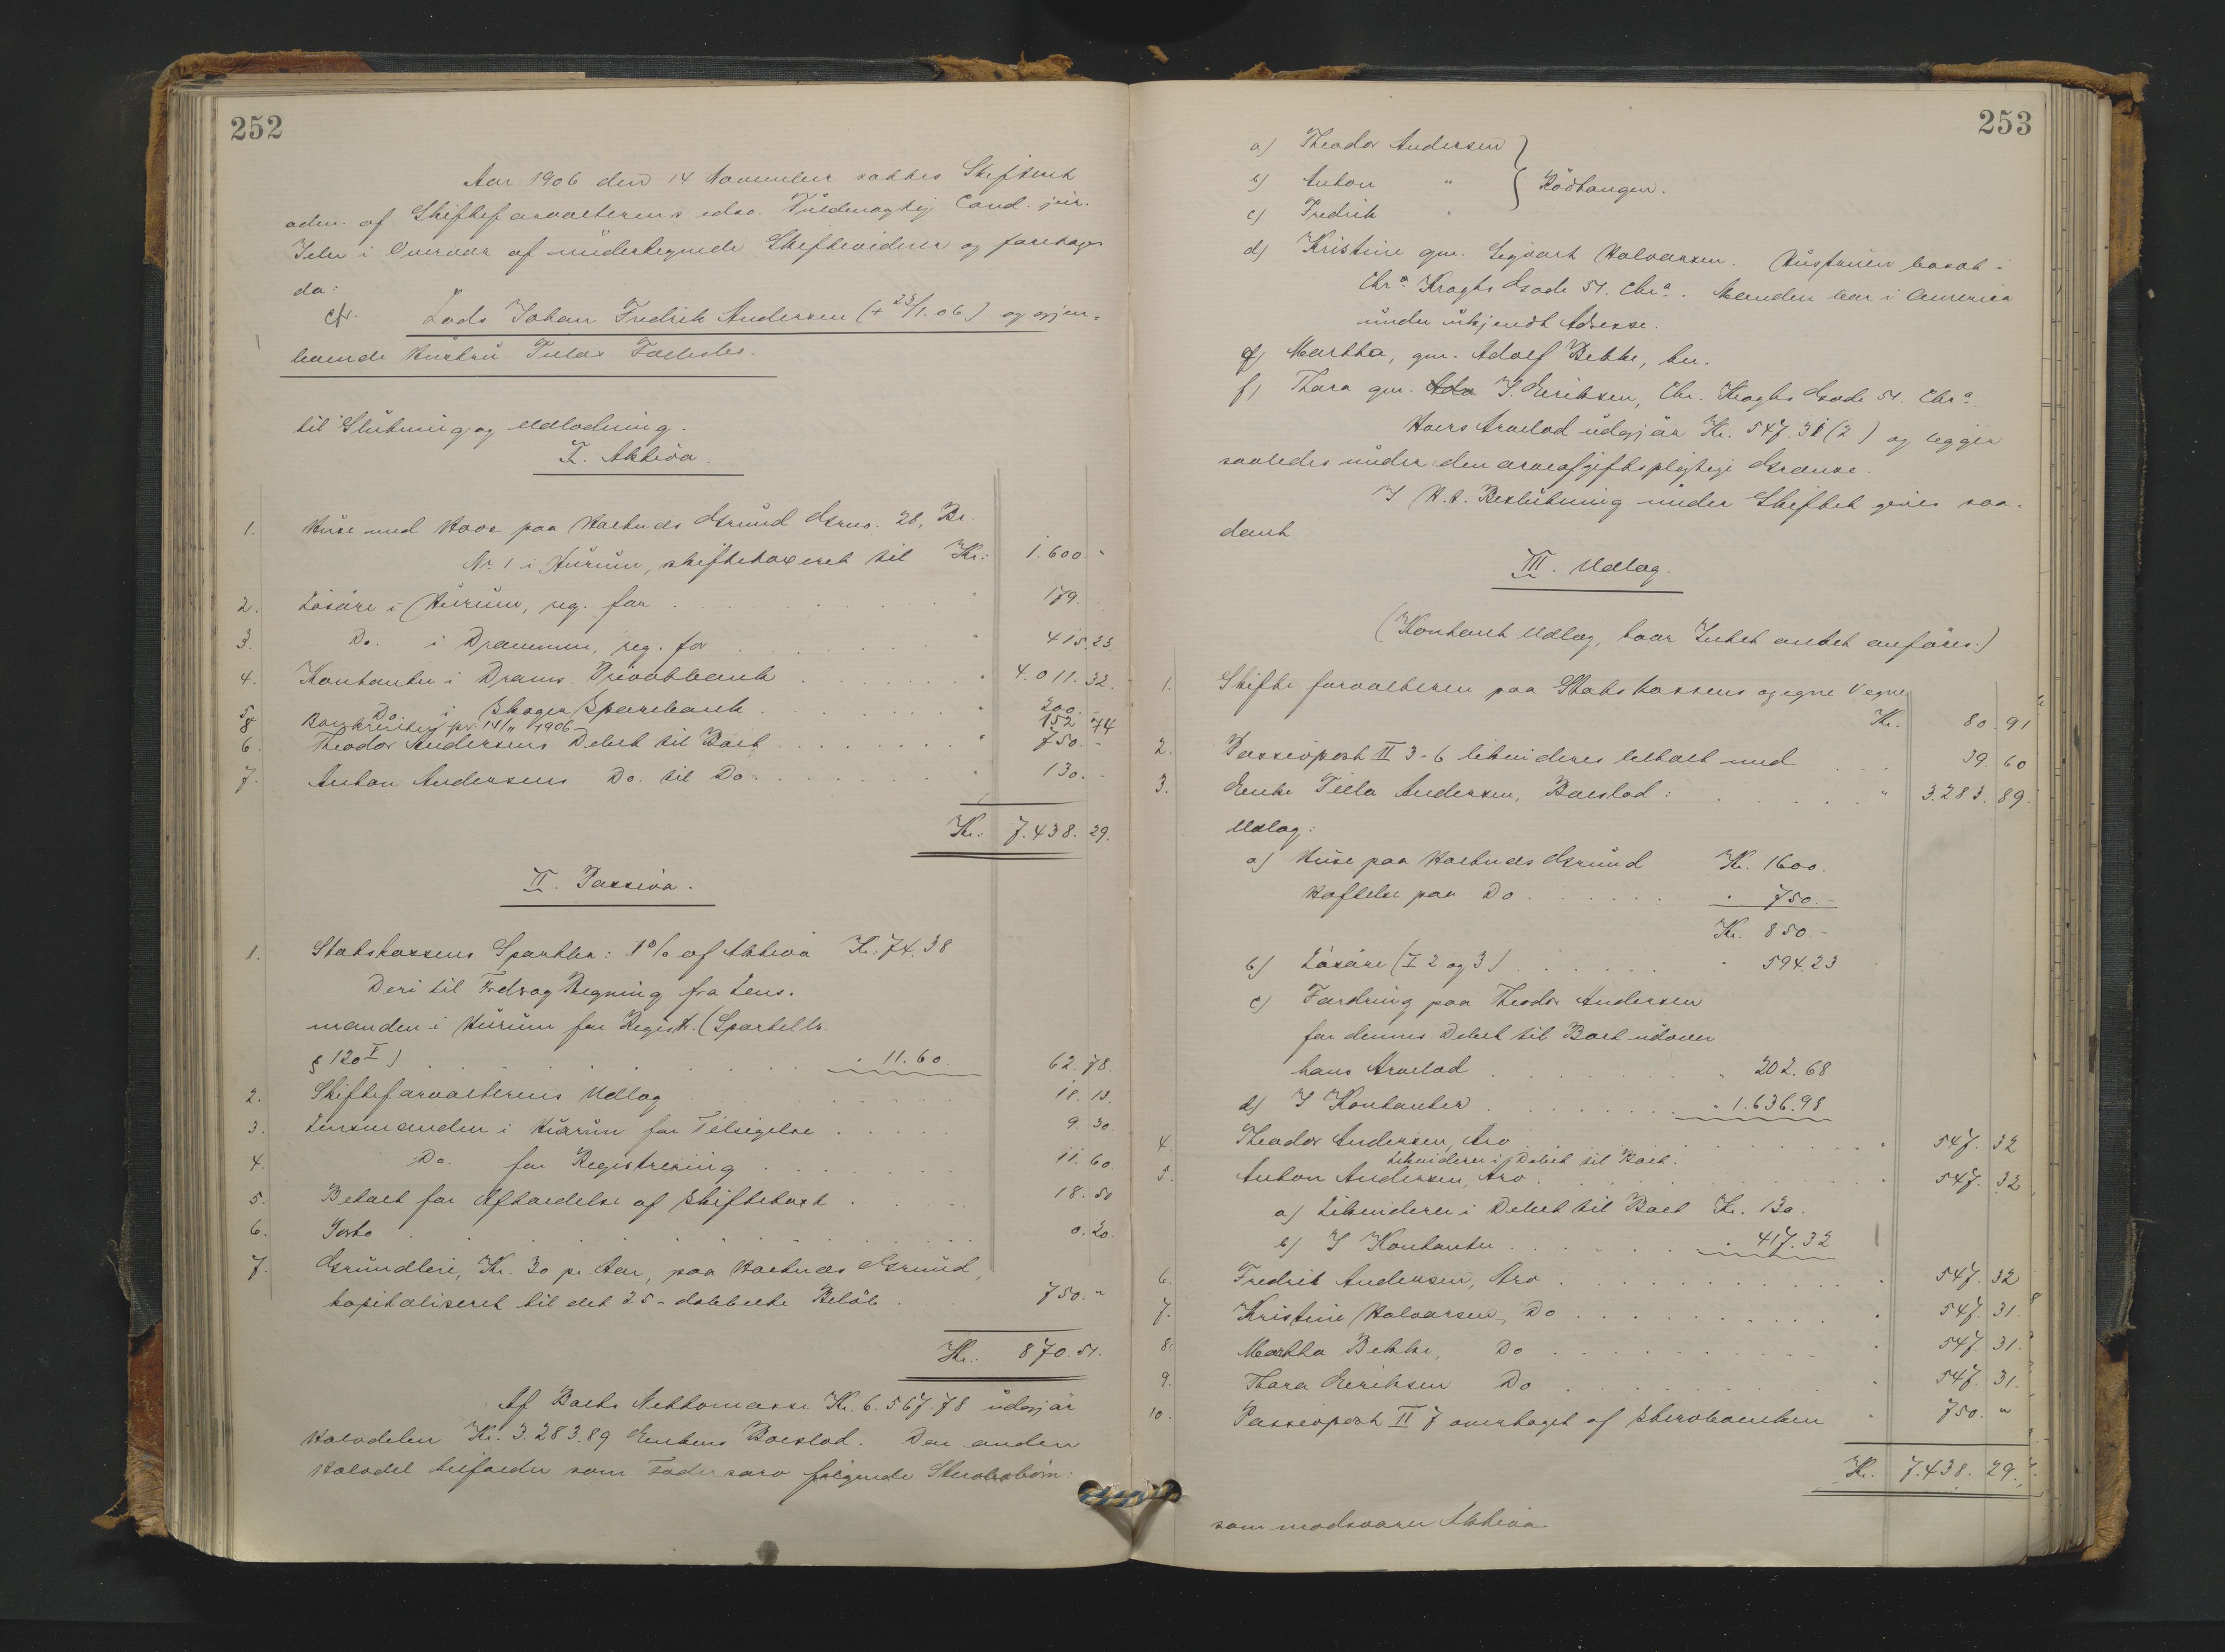 252
Aar 1906 den 14 November sattes Skifteret
adm. af Skifteforvalterens edsv. Fuldmægtig Cand. jur.
i Overvær af undertegnede Skiftevidner og foretoges
da:
cfr. Lods Johan Fredrik Andersen (+ 23/1. 06) og gjen-
levende Hustru Fællesbo.
til Slutning og Udlodning.
I. Aktiva.
1. Huse med Have paa Holtnæs Grund Grno. 28, Br.
No 1 i Hurum, skiftetaxeret til Kr: 1.600. "
2. Løsøre i Hurum, reg. for . . . " 179.
3. Do. i Drammen, reg. for . . . " 415.23.
4. Kontanter i Drams. Privatbank . . . " 4.011.32.
5 Do i Skoger Sparebank . . . " 200.
8 Bankrenter pr. 14/11 1906 152 74
6. Theodor Andersens Debet til Boet . . . " 750. -
7. Anton Andersens Do. til Do. . . . " 130. -
Kr: 7.438. 29.
II. Passiva.
1. Statskassens Sportler: 1% af Aktiva Kr. 74.38
Deri til Fradrag Regning fra Lens-
manden i Hurum for Registr. (Sportellr.
§ 120 I) . . . " 11.60. 62.78.
2. Skifteforvalterens Udlæg . . . 18.13.
3. Lensmanden i Hurum for Tilsigelse . . . 9.30.
4. Do. for Registrering . . . 11.60.
5. Betalt for Afholdelse af Skiftetaxt . . . 18.50
6. Porto . . . 0.20.
7. Grundleie, Kr. 30 pr. Aar, paa Holtnæs Grund,
kapitaliseret til det 25-dobbelte Beløb . . 750. "
Kr: 870.51.
Af Boets Nettomasse Kr. 6.567.78 udgjør
Halvdelen Kr. 3.283.89 Enkens Boeslod. Den anden
Halvdel tilfalder som Fædrearv følgende Skiftebørn:
253
a) Theodor Andersen
b) Anton "
c) Fredrik " } Rødtangen.
d) Kristine gm. Sigvart Halvorsen. Hustruen bosat i
Chra. Kroghs Gade 51. Chra. Manden bor i Amerika
under ukjendt Adresse.
e) Martha, gm. Adolf Bekke, her.
f) Thora gm. Ado J. Eriksen, Chr. Kroghs Gade 51. Chra
Hvers Arvelod udgjør Kr. 547.31 (2) og ligger
saaledes under den arveafgiftspligtige Grænse.
I H.t. Beslutning under Skiftet gives saa-
dant
III. Udlæg.
(Kontant Udlæg, hvor Intet andet anføres.)
1. Skifteforvalteren paa Statskassens og egne Vegne
Kr. 80.91
2. Passivpost II 3-6 likvideres betalt med . . . 39 60
3. Enke Andersen, Boeslod: . . . " 3.283.89.
Udlæg:
a) Huse paa Holtnæs Grund Kr. 1600.
Heftelse paa Do . . . " 750.-
Kr. 850.-
b) Løsøre (I 2 og 3) . . . " 594.23
c) Fordring paa Theodor Andersen
for dennes Debet til Boet udover
hans Arvelod . . . " 202.68
d) I Kontanter . . . " 1.636.98
4. Theodor Andersen, Arv . . . " 547. 32
Likvideres i Debet til Boet.
5. Anton Andersen, Arv . . . " 547. 32
a) Likvideres i Debet til Boet Kr. 130.
b) I Kontanter . . . " 417.32
6. Fredrik Andersen, Arv . . . " 547. 32
7. Kristine Halvorsen, Do . . . " 547. 31.
8. Martha Bekke, Do . . . " 547. 31.
9. Thora Eriksen Do . . . " 547. 31.
10. Passivpost II 7 overtaget af Stervboenken " 750. "
Kr. 7.438. 29.
som modsvarer Aktiva